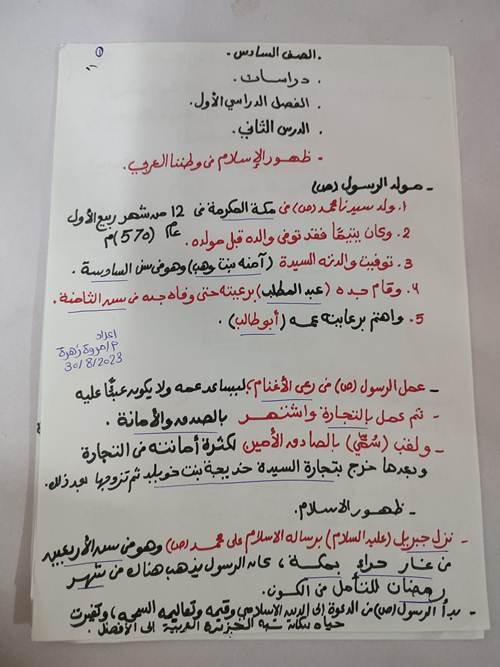 ①
. الصف السادس .
. دراسات .
. الفصل الدراسي الأول .
. الدرس الثاني .
- ظهور الإسلام فى وطننا العربي .
- مولد الرسول (ص)
1. ولد سيدنا محمد (ص) فى مكة المكرمة فى 12 من شهر ربيع الأول
عام (570) م
2. وكان يتيمًا فقد توفى والده قبل مولده .
3. توفيت والدته السيدة (آمنه بنت وهب) وهو فى سن السادسة .
4. وقام جده (عبد المطلب) برعيته حتى وفاه جده فى سن الثامنة .
5. واهتم برعايته عمه (أبو طالب) .
اعداد
م/مروة زهرة
30/8/2023
- عمل الرسول (ص) فى رعى الأغنام ؛ ليساعد عمه ولا يكون عبئًا عليه
- ثم عمل بالتجارة واشتهر بالصدق والأمانة .
- ولقب (سُمِّي) بالصادق الأمين لكثرة أمانته فى التجارة
وبعدها خرج بتجارة السيدة خديجة بنت خويلد ثم تزوجها بعد ذلك .
- ظهور الاسلام .
- نزل جبريل (عليه السلام) برساله الاسلام على محمد (ص) وهو فى سن الأربعين
فى غار حراء بمكة ، كان الرسول يذهب هناك فى شهر
رمضان للتأمل فى الكون .
- بدأ الرسول (ص) فى الدعوة إلى الدين الإسلامي وقيمه وتعاليمه السمحه ، وتغيرت
حياه سكان شبه الجزيرة العربية إلى الأفضل .